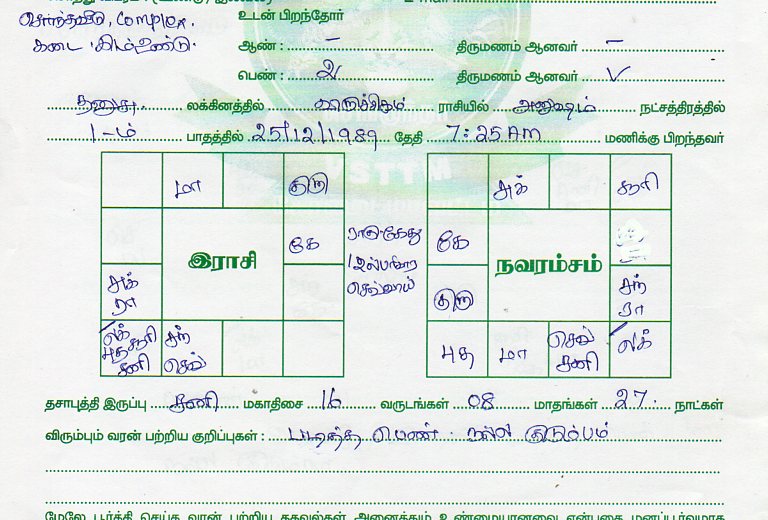 சொந்தவீடு, Complex. உடன் பிறந்தோர்
கடை ஆண் : – திருமணம் ஆனவர் –
பெண் : 2 திருமணம் ஆனவர் ✓
தனுசு லக்கினத்தில் விருச்சிகம் ராசியில் அனுஷம் நட்சத்திரத்தில்
1-ம் பாதத்தில் 25/12/1989 தேதி 7:25 Am மணிக்கு பிறந்தவர்
மா குரு சுக் சூரி
கே ராகு கேது கே
இராசி நவரம்சம்
சுக் ரா செவ்வாய் குரு சந் ரா
லக் புத சூரி சனி சந் செவ் புத மா செவ் சனி லக்
தசாபுத்தி இருப்பு சனி மகாதிசை 16 வருடங்கள் 08 மாதங்கள் 27 நாட்கள்
விரும்பும் வரன் பற்றிய குறிப்புகள் : படித்த பெண் நல்ல குடும்பம்
மேலே பூர்த்தி செய்த வரன் பற்றிய தகவல்கள் அனைத்தும் உண்மையானவை என்பதை மனப்பூர்வமாக